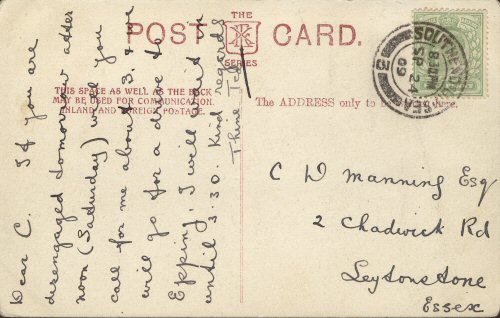 POST CARD.
THE
SERIES
THIS SPACE AS WELL AS THE BACK
MAY BE USED FOR COMMUNICATION.
INLAND AND FOREIGN POSTAGE.
The ADDRESS only to be here.
SOUTHEND
8.30PM
SP 24
09
2
Dear C. If you are
disengaged tomorrow after
noon (Saturday) will you
call for me about 3. & we
will go for a drive to
Epping. I will await u
until 3.30. Kind regards
Thine
C D Manning Esq
2 Chadwick Rd
Leytonstone
Essex